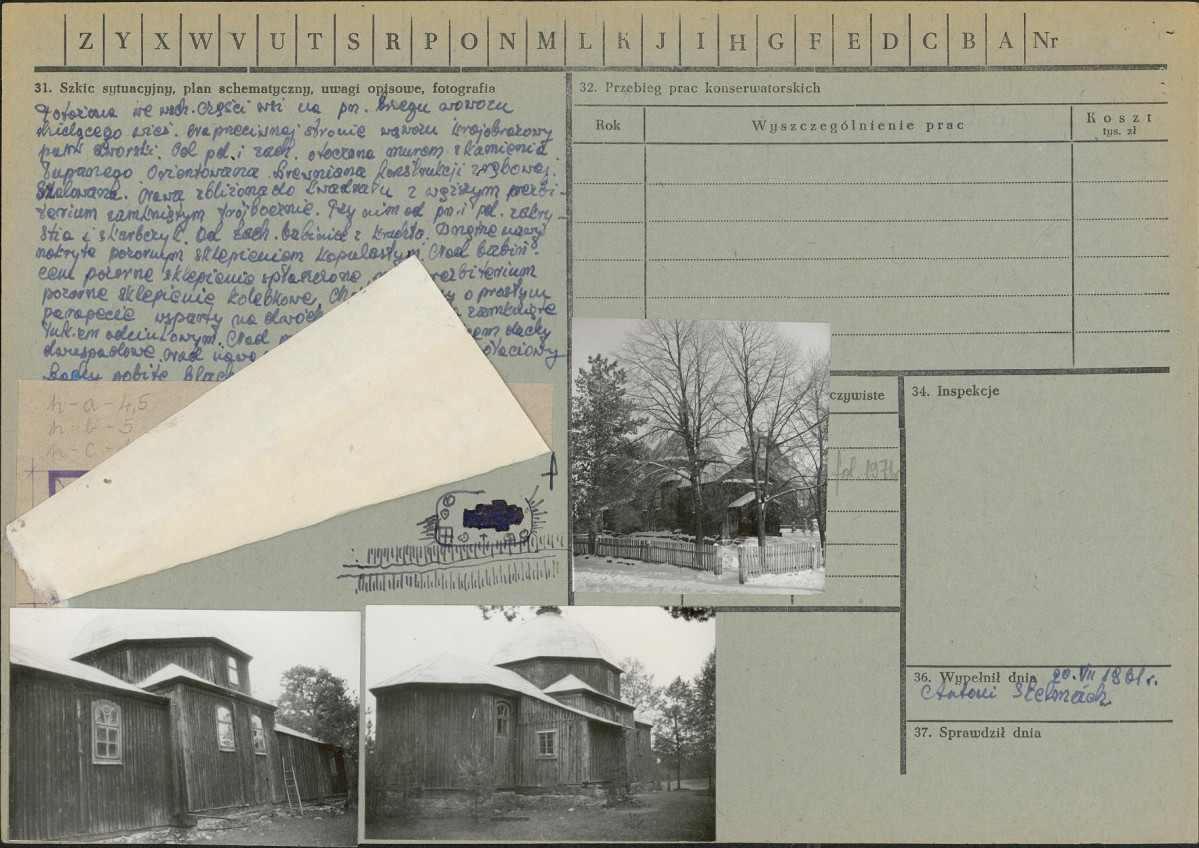 Z Y X W V U T S R P O N M L K J I H G F E D C B A Nr
31. Szkic sytuacyjny, plan schematyczny, uwagi opisowe, fotografia
Położona we wsch. części wsi na pn. brzegu wąwozu
wieś. Na przeciwnej stronie wąwozu krajobrazowy
park dworski. Od pd. i zach. otoczona murem z kamienia
łupanego Orientowana. Drewniana konstrukcji zrębowej.
Szalowana. Nawa zbliżona do kwadratu z węższym prezbi-
terium zamkniętym trójbocznie. Przy nim od pn. i pd. zakry-
stia i skarbczyk. Od zach. babiniec z kruchtą. Wnętrze nawy
nakryte pozornym sklepieniem kopulastym. Nad babiń-
cem pozorne sklepienie spłaszczone,
pozorne sklepienie kolebkowe. y o prostym
parapecie wsparty na dwóch zamknięte
łukiem odcinkowym. Nad dachy
dwuspadowe. Nad nawą
Dachy pobite
n - a - 4,5
n - b - 5
n - c -
32. Przebieg prac konserwatorskich
Rok
Wyszczególnienie prac
Koszt
tys. zł
czywiste
fot. 1971
34. Inspekcje
36. Wypełnił dnia 20. VII 1961 r.
Antoni Stelmach
37. Sprawdził dnia